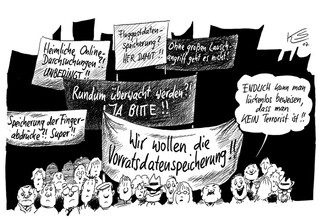 Heimliche Online-
Durchsuchungen?!!
UNBEDINGT!!
Fluggastdaten-
speicherung?
HER DAMIT!!
Ohne großen Lausch-
angriff geht es nicht!
Rundum überwacht werden?!
JA BITTE!!
Speicherung der Finger-
abdrücke?! Super!!
Wir wollen die
Vorratsdatenspeicherung!!
ENDLICH kann man
lückenlos beweisen,
dass man
KEIN Terrorist ist!!